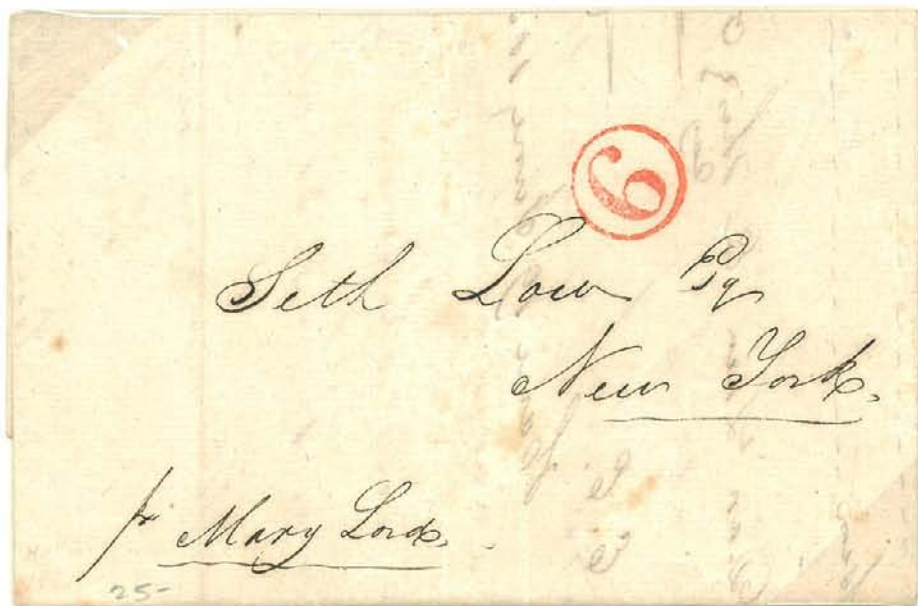 6
Seth Low Esq
New York.
pr Mary Lord.
25-